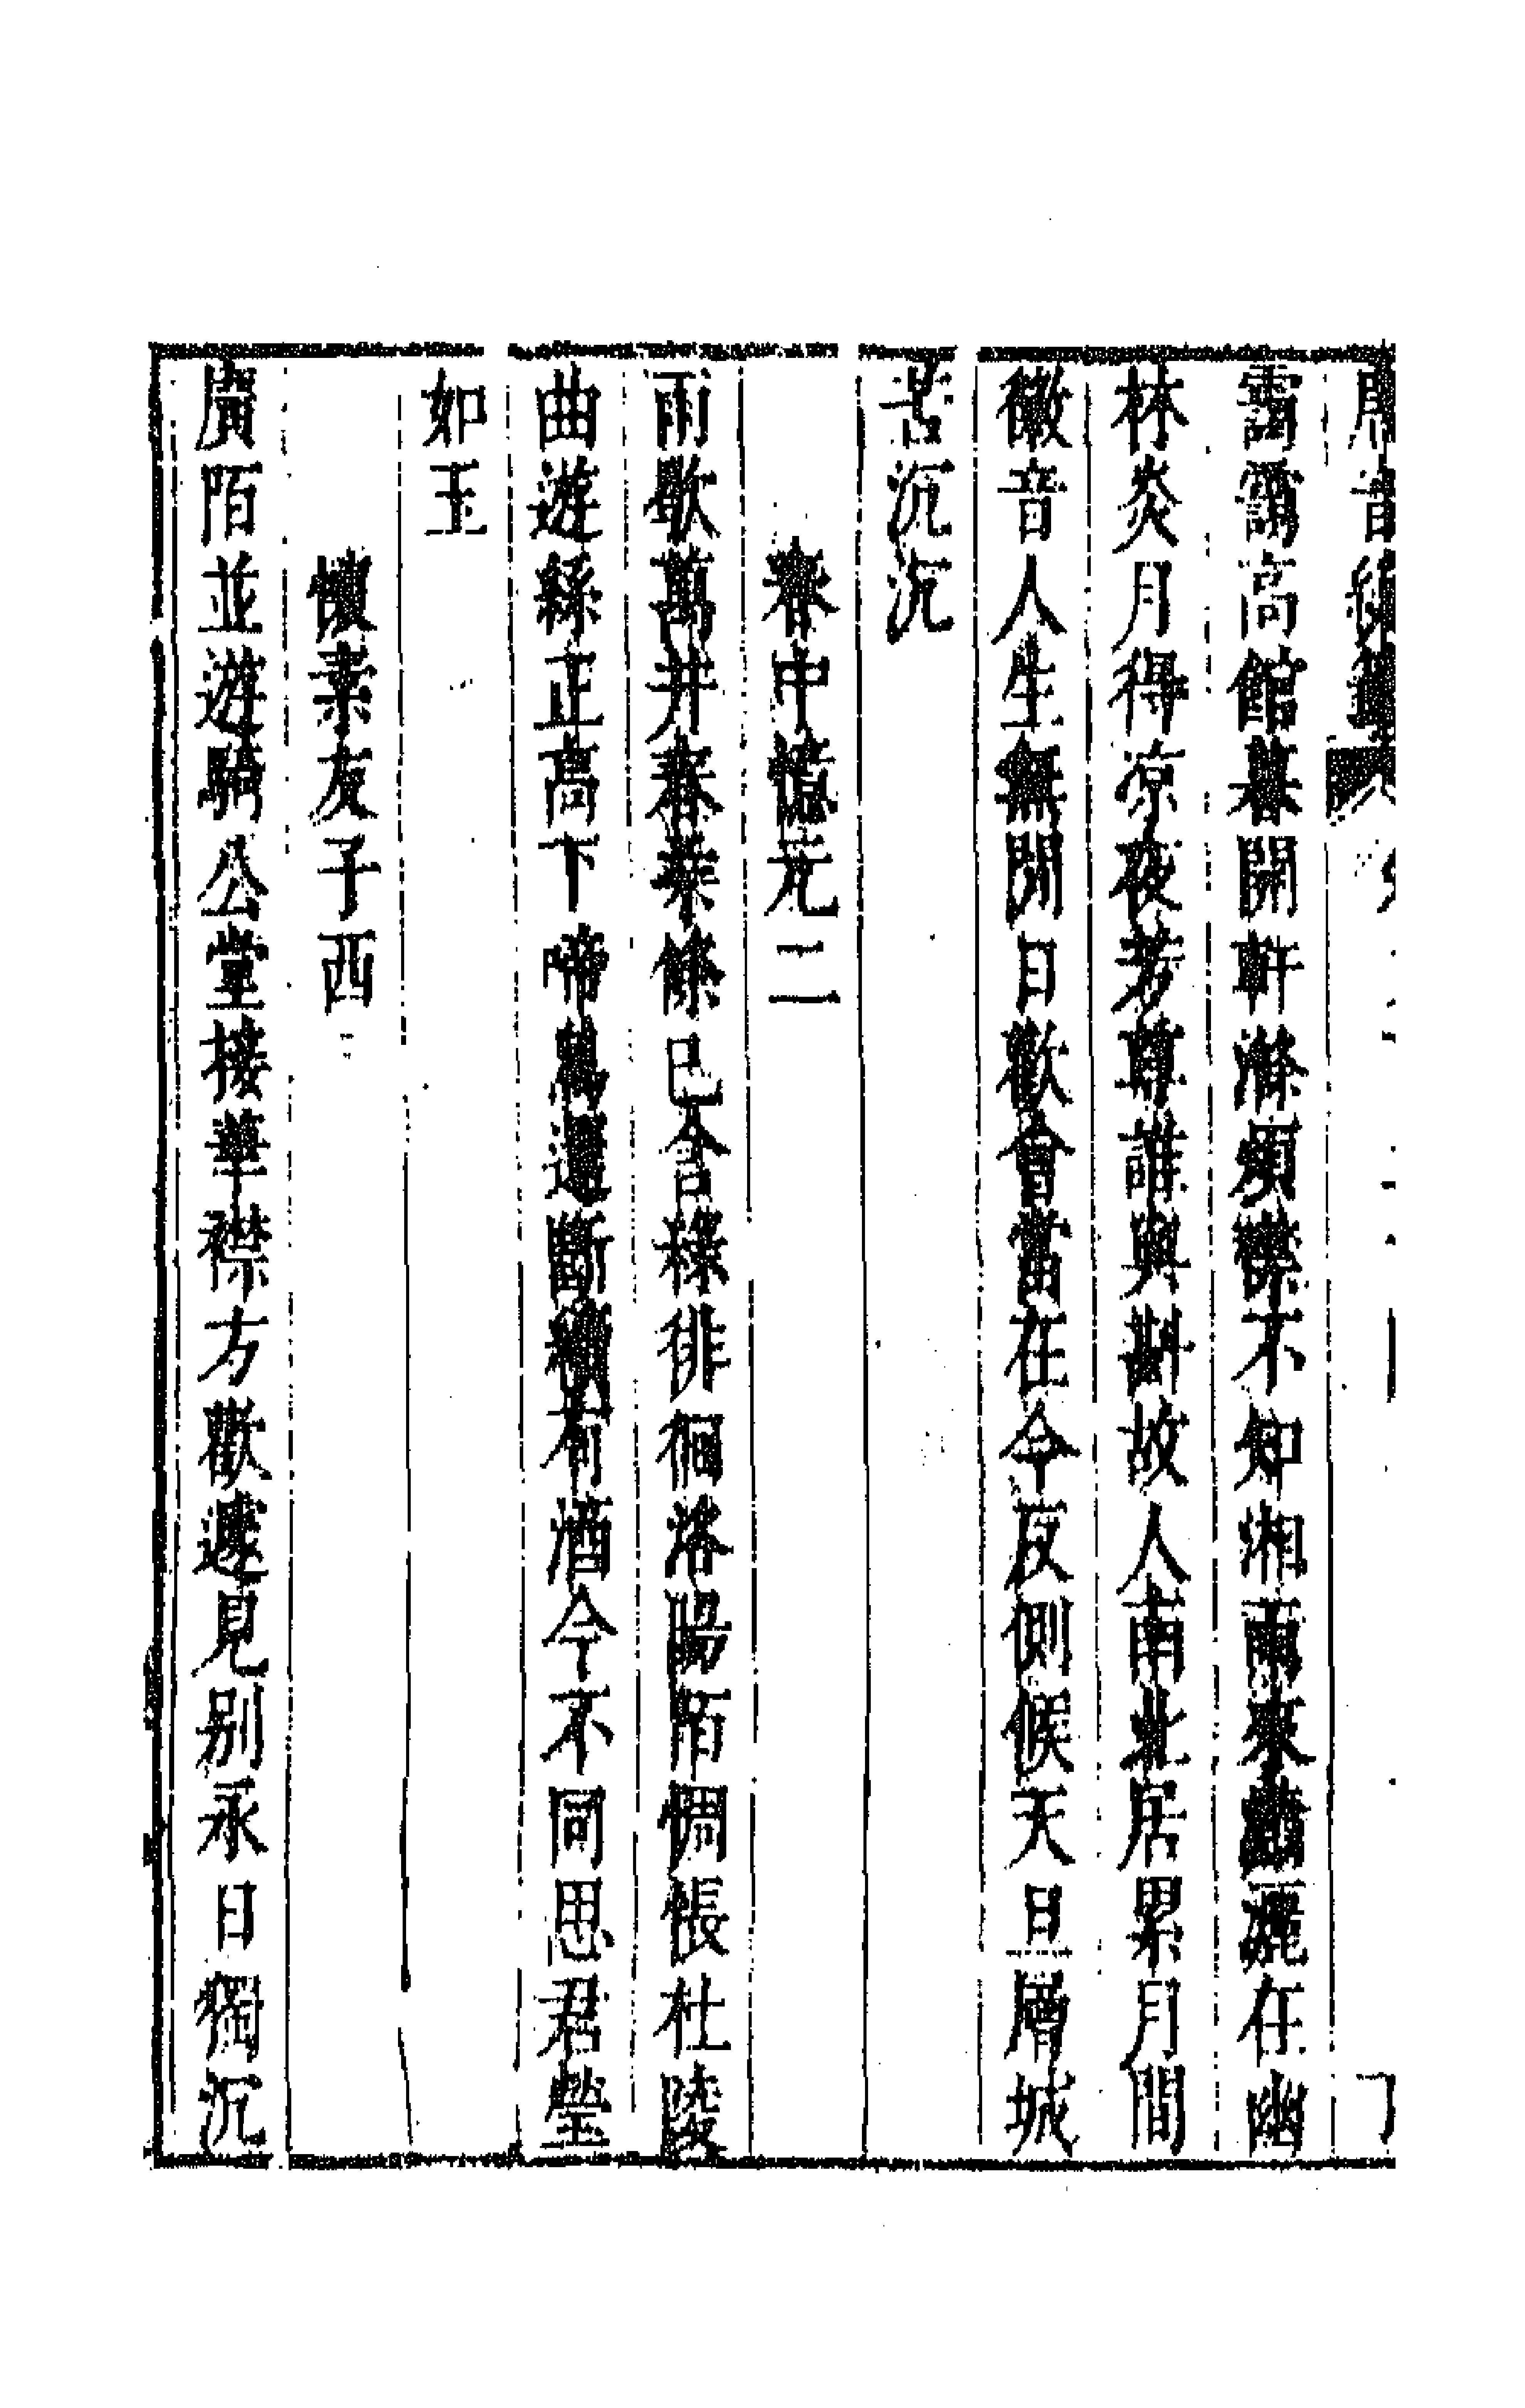 靄靄高館暮開軒滌煩襟不知湘雨來瀟灑在幽
林炎月得凉夜芳尊誰與斟故人南北居累月間
徽音人生無閒日歡會當在今反側候天旦層城
苦沉沉
春中憶元二
雨歇萬井春柔條已含綠徘徊洛陽陌惆悵杜陵
曲遊絲正高下啼鳥還斷續有酒今不同思君瑩
如玉
懷素友子西
廣陌並遊騎公堂接華襟方歡遽見别永日獨沉